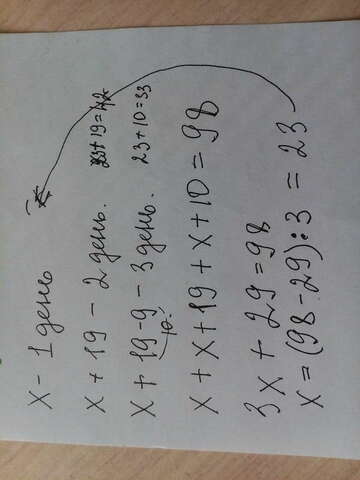 x - 1 день
x + 19 - 2 день. 23 + 19 = 42
x + 19 - 9 - 3 день. 23 + 10 = 33
10.
x + x + 19 + x + 10 = 98
3x + 29 = 98
x = (98 - 29) : 3 = 23